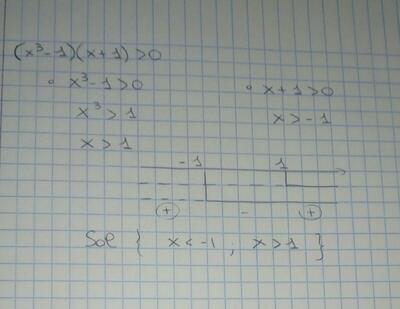 (x³-1)(x+1)>0
• x³-1>0 • x+1>0
x³>1 x>-1
x>1
-1 1
+ - +
Sol { x<-1 ; x>1 }